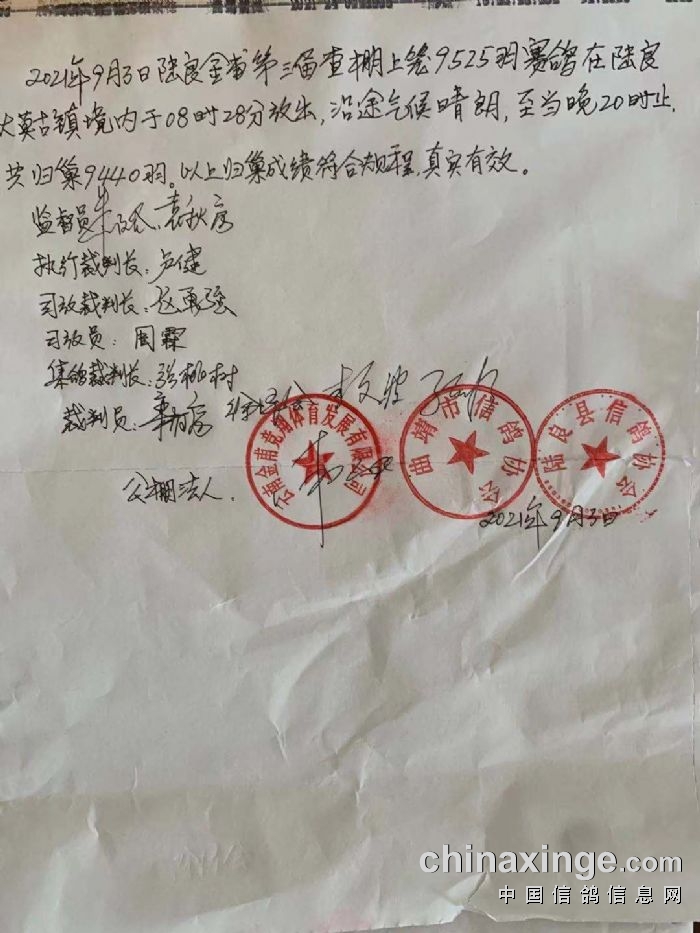 2021年9月3日陆良金甫第三届查棚上笼9525羽赛鸽在陆良
大莫古镇境内于08时28分放出,沿途气候晴朗,至当晚20时止,
共归巢9440羽。以上归巢成绩符合规程,真实有效。
监督员 袁秋富
执行裁判长:卢健
司放裁判长:赵承强
司放员:周霖
集鸽裁判长:张柳树
裁判员:
公棚法人.
云南金甫竞翔体育发展有限公司
曲靖市信鸽协会
陆良县信鸽协会
2021年9月3日
chinaxinge.com
中国信鸽信息网